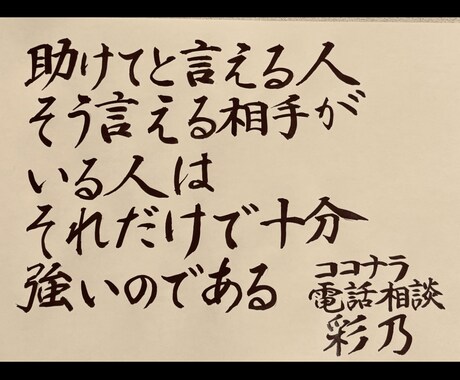 助けてと言える人
そう言える相手が
いる人は
それだけで十分
強いのである
ココナラ
電話相談
彩乃